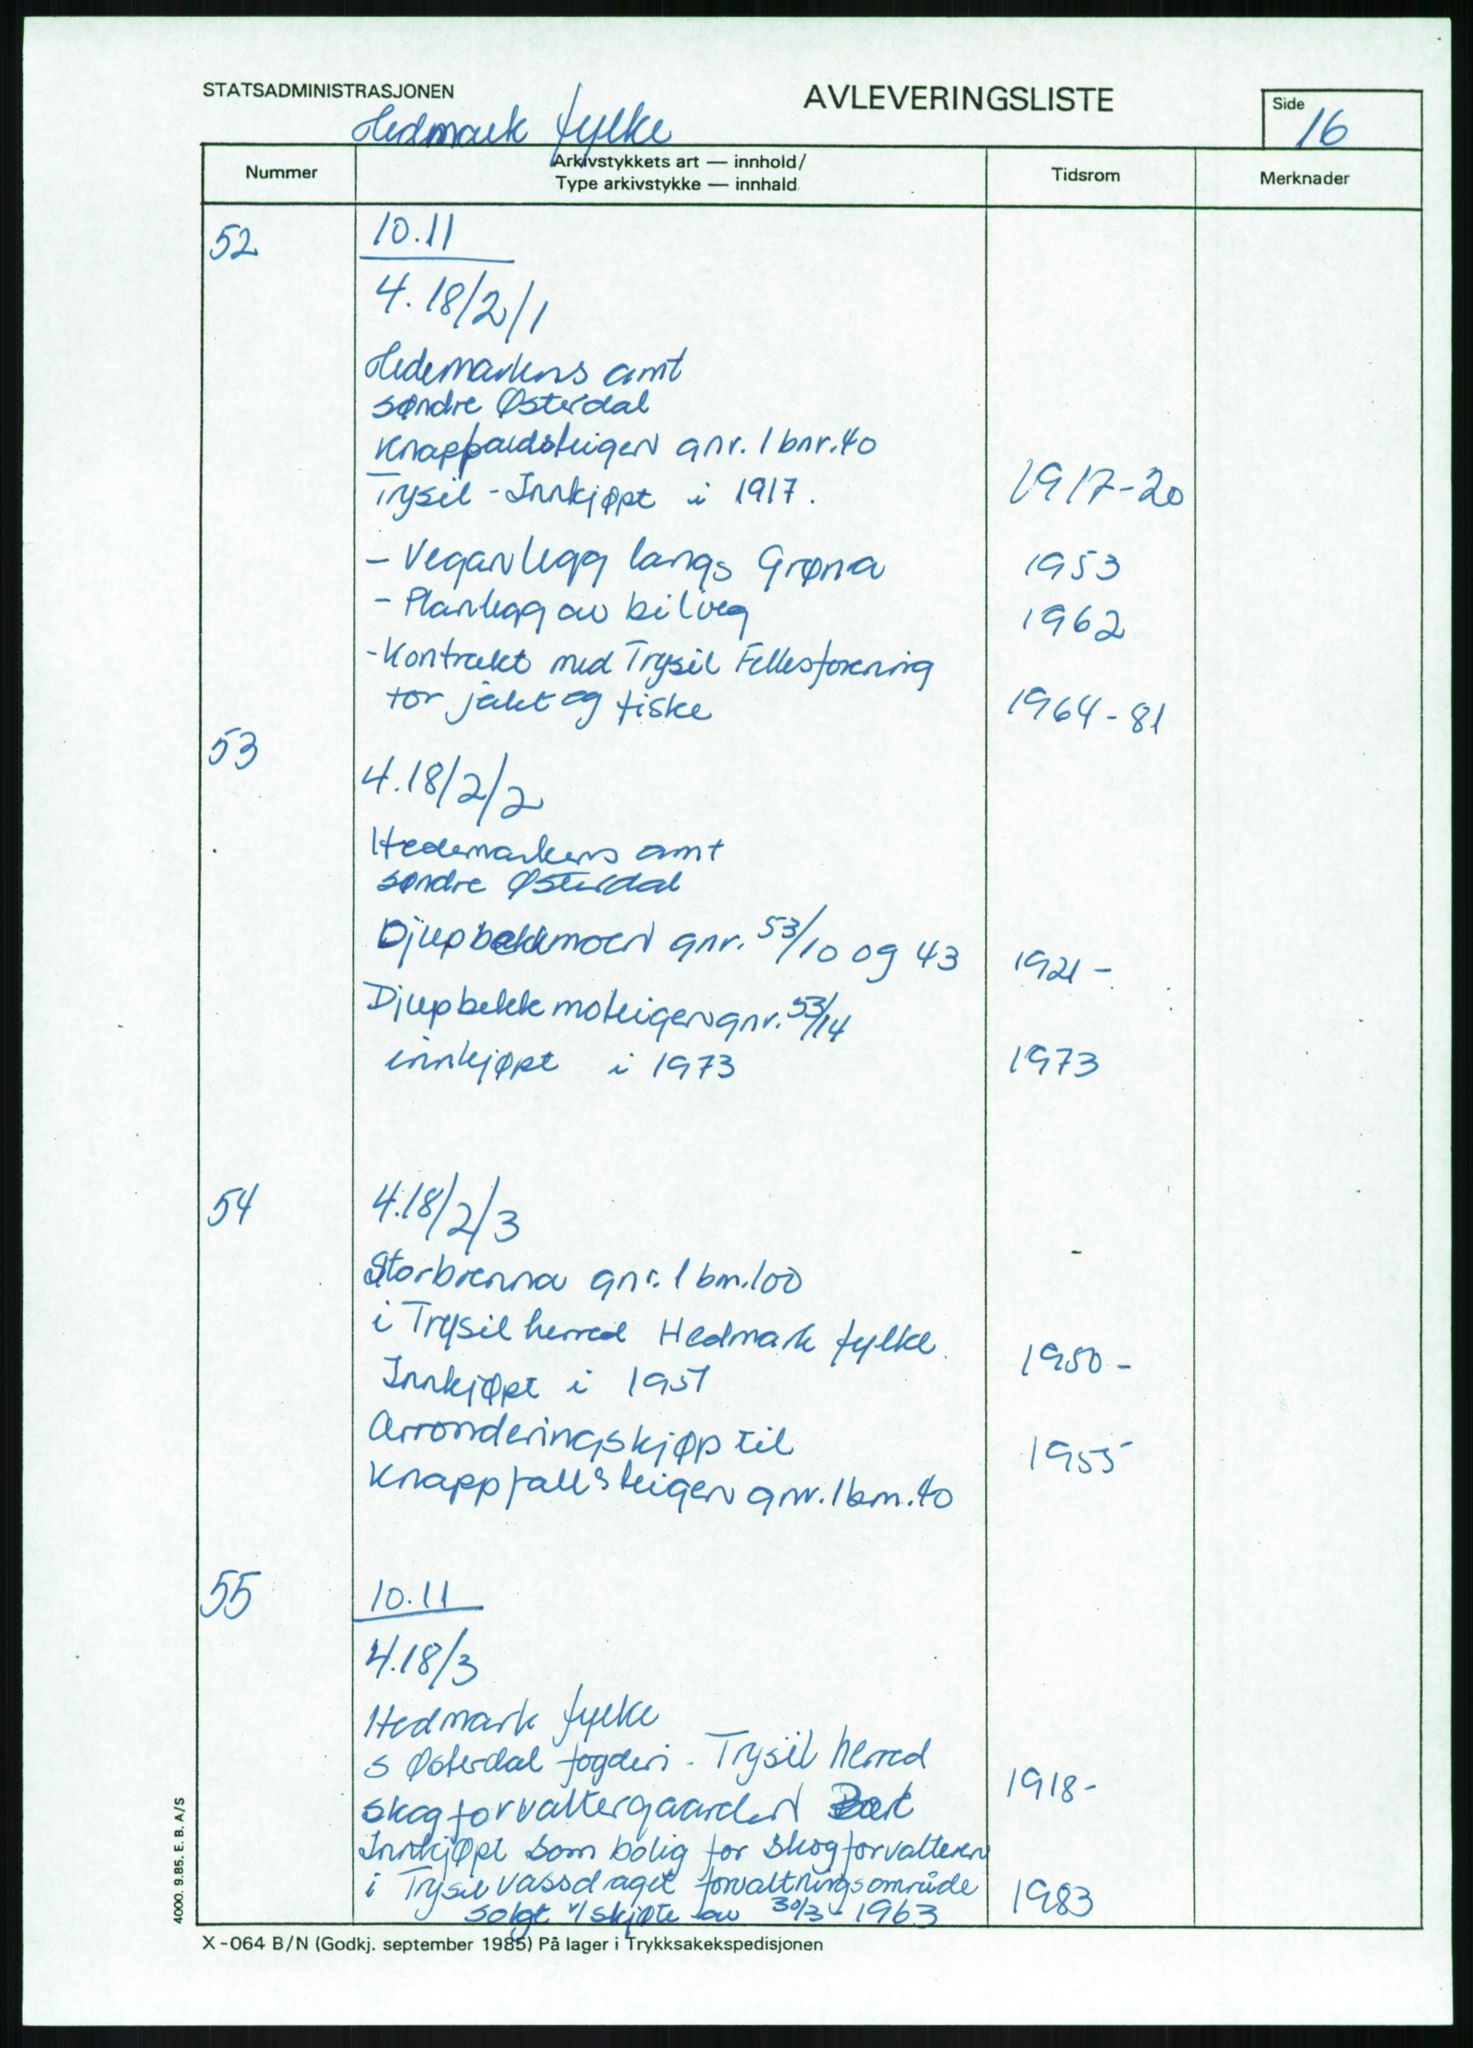 STATSADMINISTRASJONEN
AVLEVERINGSLISTE
Side 16
Hedmark fylke
Nummer
Arkivstykkets art — innhold/
Type arkivstykke — innhald
Tidsrom
Merknader
52
10.11
4.18/2/1
Hedemarkens amt
søndre Østerdal
gnr. 1 bnr. 40
Trysil - Innkjøpt i 1917. 1917-20
- Veganlegg langs Grøna 1953
- Planlegg av bilveg 1962
- Kontrakt med Trysil Fellesforening
for jakt og fiske 1964-81
53
4.18/2/2
Hedemarkens amt
søndre Østerdal
Djupbekkmoen gnr. 53/10 og 43 1921-
Djupbekkmoteigen gnr. 53/14
innkjøpt i 1973 1973
54 4.18/2/3
Storbrenna gnr. 1 bnr. 100
i Trysil herred Hedmark fylke
Innkjøpt i 1951 1950-
Arronderingskjøp til 1955
Knappfallsteigen gnr. 1 bnr. 40
55 10.11
4.18/3
Hedmark fylke
S Østerdal fogderi - Trysil herred
Skogforvaltergaarden 1918-
Innkjøpt som bolig for skogforvalteren
i Trysilvassdraget forvaltningsområde 1983
solgt v/skjøte av 30/3 - 1963
X-064 B/N (Godkj. september 1985) På lager i Trykksakekspedisjonen
4000. 9.85. E. B. A/S